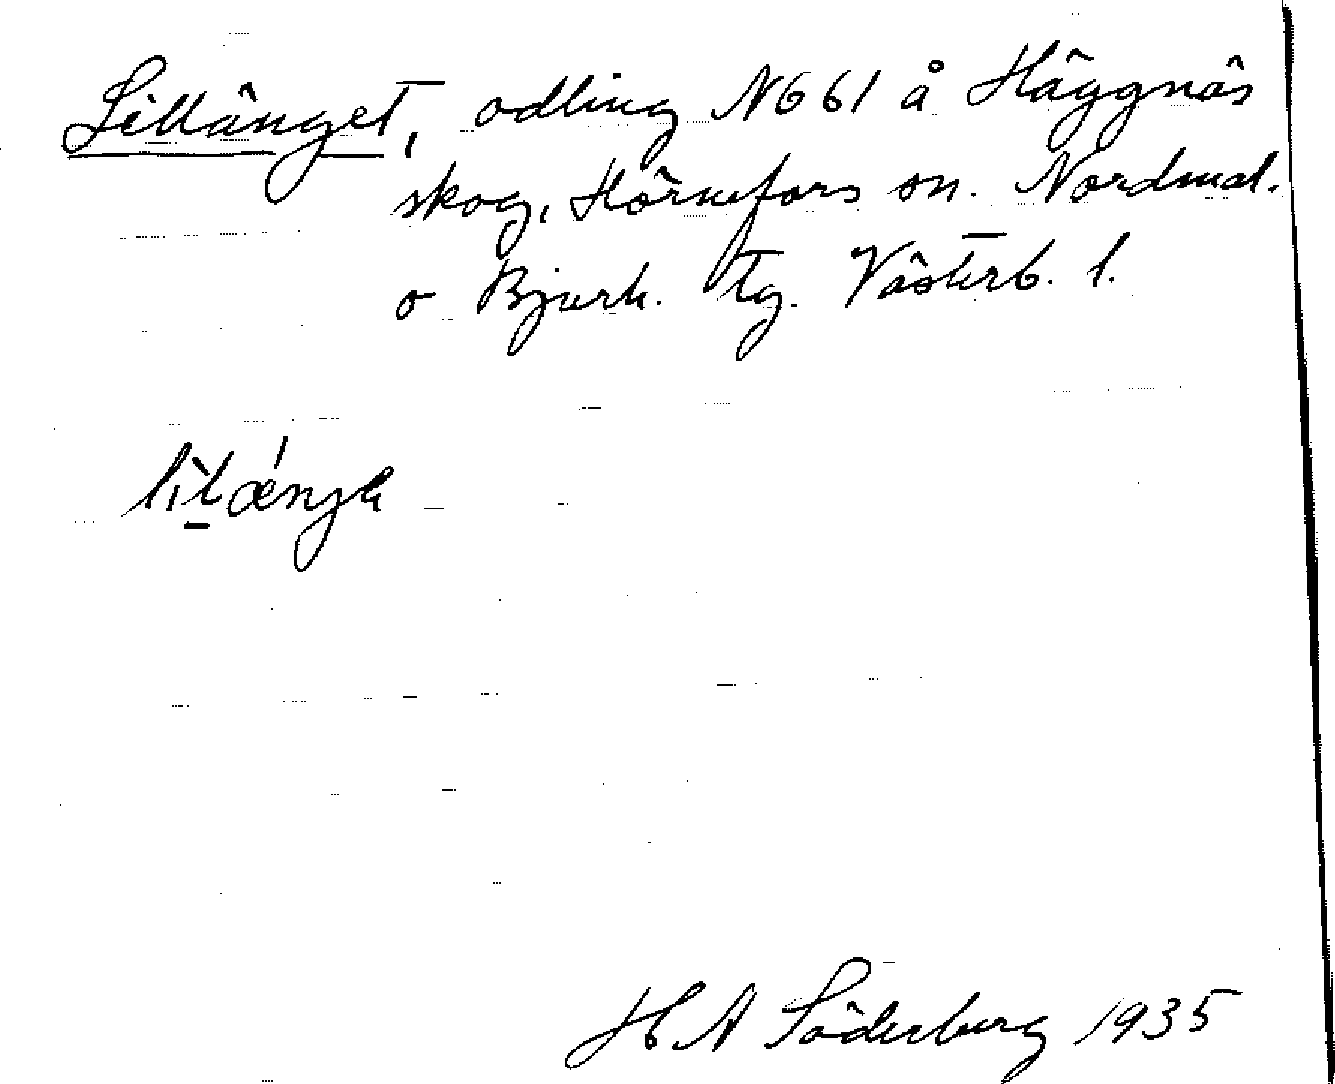 Lillänget, odling N661 å Häggnäs
skog, Hörnefors sn. Nordmal.
o Bjurh. tg. Västerb. l.
H A Söderberg 1935